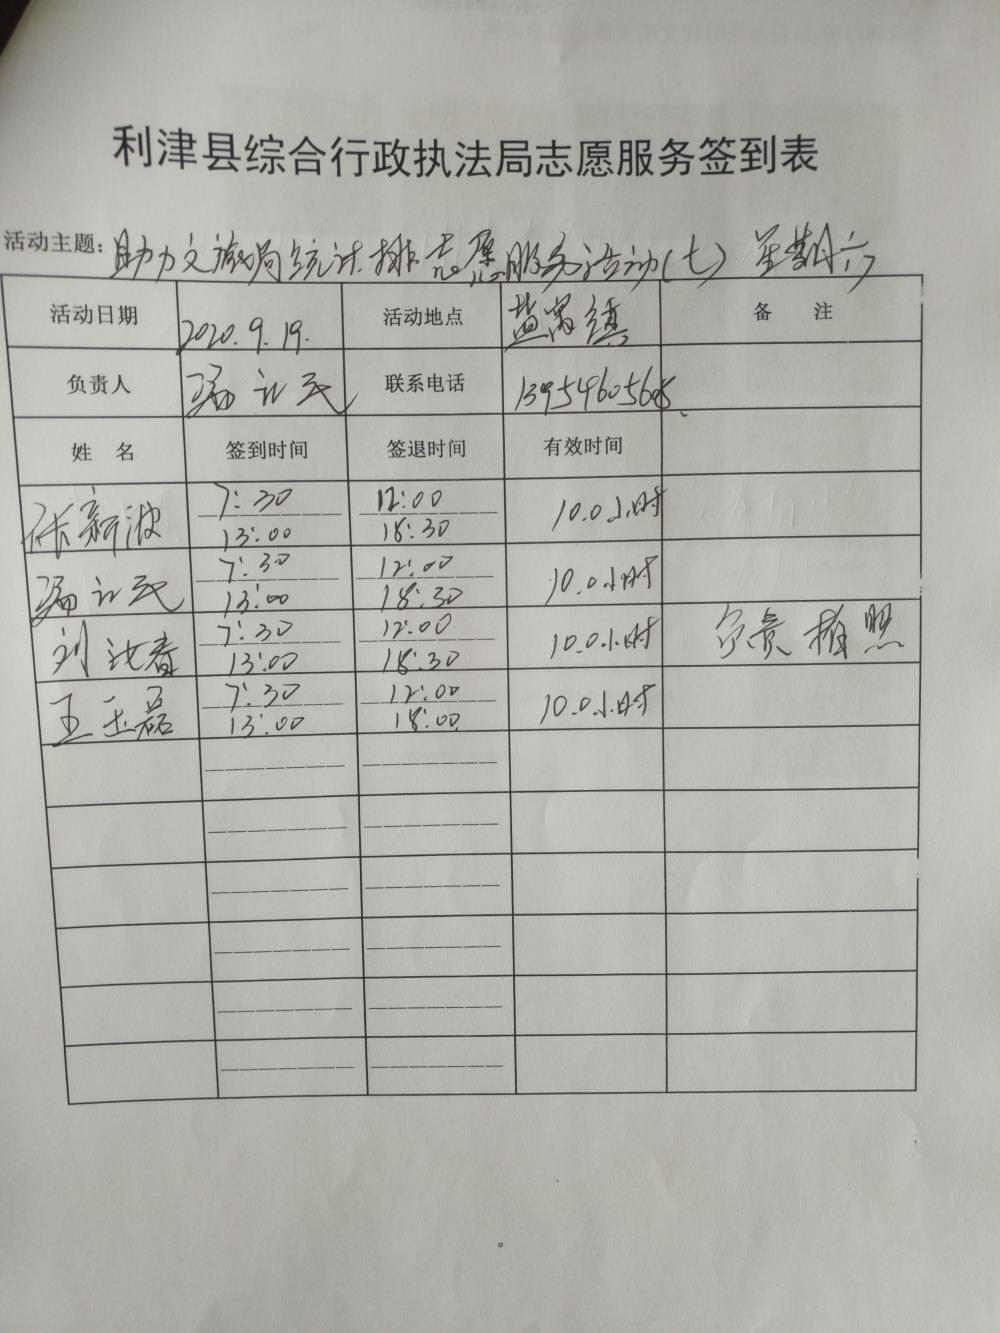 利津县综合行政执法局志愿服务签到表
活动主题：助力文旅局统计排志愿服务活动(七) 星期六
活动日期 2020.9.19. 活动地点 盐窝镇 备 注
负责人 联系电话
姓 名 签到时间 签退时间 有效时间
张新波 7:30 12:00 10.0小时
13:00 18:30
7:30 12:00 10.0小时
13:00 18:30
刘 春 7:30 12:00 10.0小时 负责 照
13:00 18:30
王玉磊 7:30 12:00 10.0小时
13:00 18:00